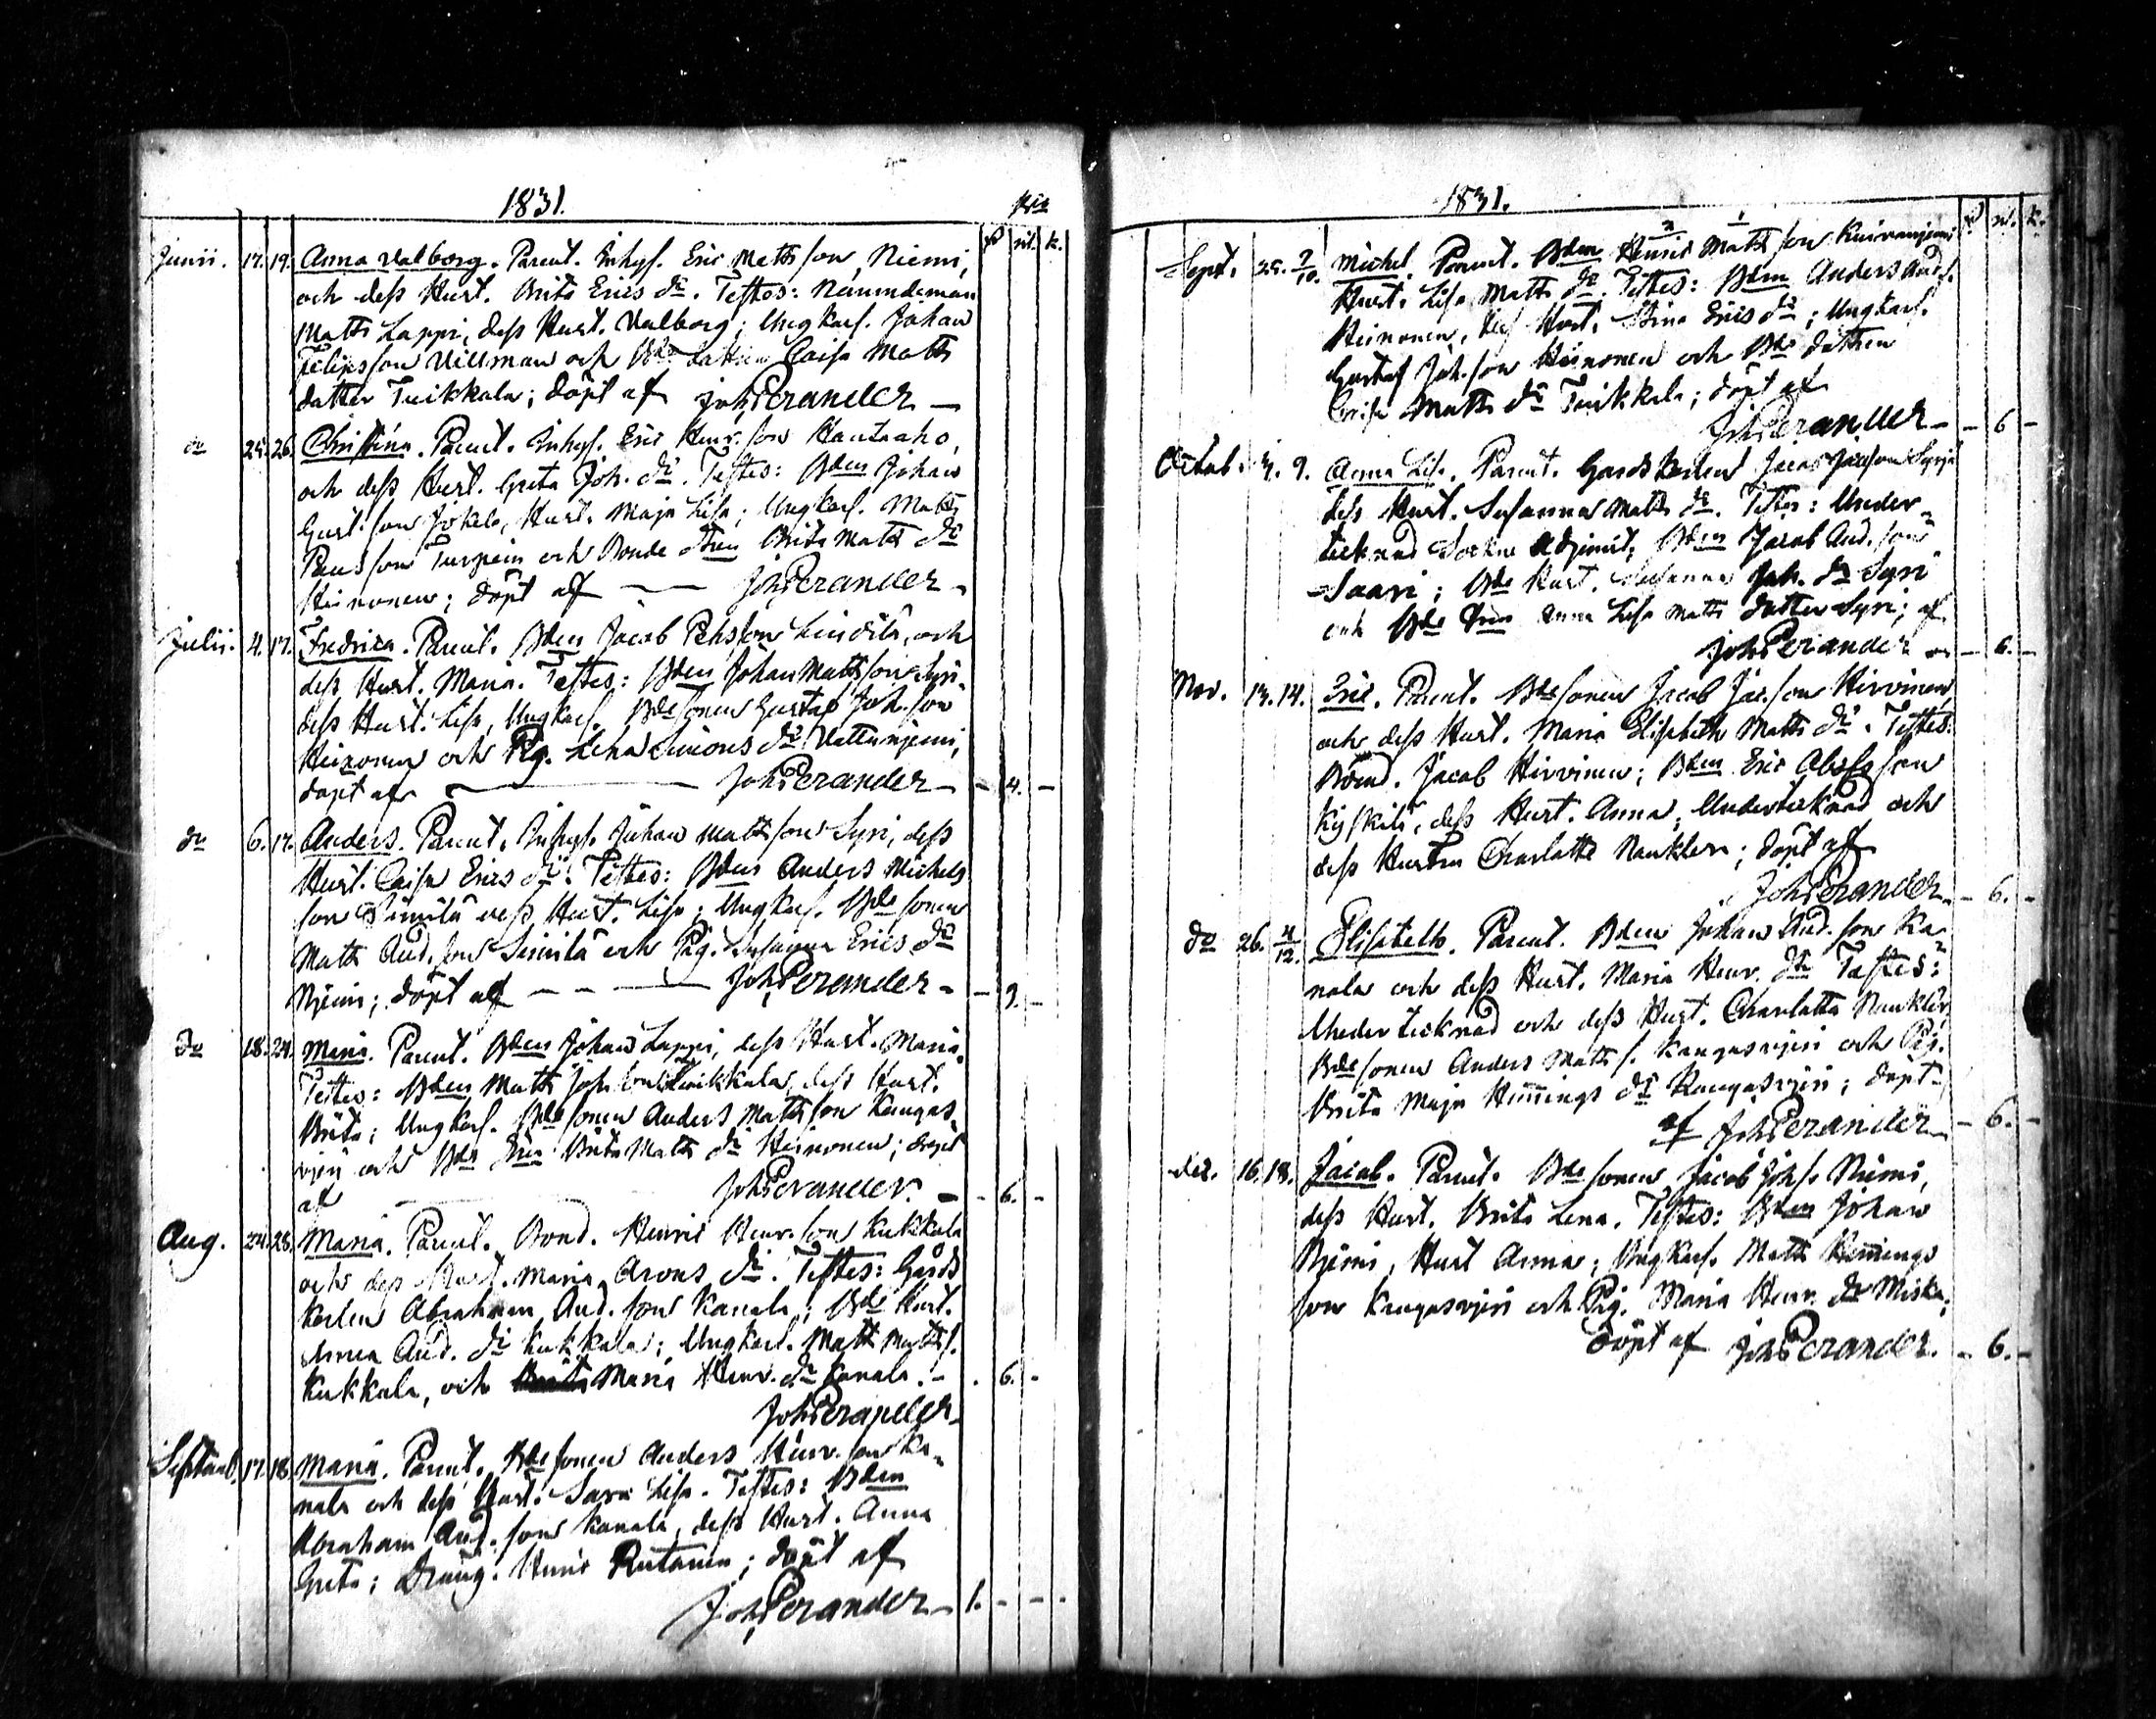 1831.
Junii. 17. 19. Anna Valborg. Parent. Inhys. Eric Mattsson Niemi,
och dess Hust. Brita Erics dr. Testes: Nämndeman
Matts Lappi, dess Hust. Valborg; Ungkarl. Johan
Felixson Villman och Bde dattren Caisa Matts
datter Tuikkala; döpt af Joh Perander —
do 25. 26. Christina. Parent. Inhys. Eric Henr.son Hautaaho,
och dess Hust. Greta Joh. dr. Testes: Bden Johan
Gust.son Jokela, Hust. Maja Lisa; Ungkarl. Matts
Paulsson Turpein och Bonde dtren Brita Matts dr
Heinonen; döpt af — Joh Perander —
Julii. 4. 17. Fredrica. Parent. Bden Jacob Pehrsson Lindilä, och
dess Hust. Maria. Testes: Bden Johan Mattsson Syri,
dess Hust. Lisa, Ungkarl. Bde sonen Gustaf Joh.son
Heinonen och Pig. Lena Simons dr Vattunjemi,
döpt af — Joh Perander — - 4. -
do 6. 17. Anders. Parent. Inhys. Johan Mattsson Syri, dess
Hust. Caisa Erics dr. Testes: Bden Anders Michels
son Simila dess Hust. Lisa; Ungkarl. Bde sonen
Matts And.son Simila och Pig. Susanna Erics dr
Njemi; döpt af - - — Joh Perander - - 9. -
do 18. 24. Maria. Parent. Bden Johan Lappi, dess Hust. Maria.
Testes: Bden Matts Joh.son Tuikkala, dess Hust.
Brita; Ungkarl. Bde sonen Anders Mattsson Kangas-
vjeri och Bde dtren Brita Matts dr Heinonen; döpt
af — Joh Perander. — - 6. -
Aug. 24. 28. Maria. Parent. Bond. Henric Henr.son Kukkala
och dess Hust. Maria Arons dr. Testes: Gårds
karlen Abraham And.son Kanala; Bde Hust.
Anna And. dr Kukkala; Ungkarl. Matts Matts s.
Kukkala, och Maria Henr. dr Kanala. - . 6. -
Joh Perander
Septemb. 17. 18. Maria. Parent. Bde sonen Anders Henr.son Ka-
nala och dess Hust. Sara Lisa. Testes: Bden
Abraham And.son Kanala, dess Hust. Anna
Greta; Dräng. Henric Rutanen; döpt af
Joh Perander — 1. - - -
1831.
Sept. 25. 2/10. Michel. Parent. Bden Henric Matts son Kuivanjemi
Hust. Lisa Matts dr. Testes: Bden Anders And s.
Heinonen, dess Hust. Stina Erics dr; Ungkarl.
Gustaf Joh.son Heinonen och Bde dattren
Caisa Matts dr Tuikkala; döpt af
Joh Perander - - 6 -
Octob. 4. 9. Anna Lis. Parent. Gårdskarlen Jacob Jacson Syrjä
dess Hust. Susanna Matts dr. Testes: Under-
tecknad Sockne Adjunct; Bden Jacob And.son
Saari; Bde Hust. Susanna Joh. dr Syri
och Bde dtren Anna Lisa Matts datter Syri; af
Joh Perander - - 6. -
Nov. 13. 14. Eric. Parent. Bde sonen Jacob Jac.son Hirvinen,
och dess Hust. Maria Elisabeth Matts dr. Testes:
Bond. Jacob Hirvinen; Bden Eric Abr.sson
Kyskilä, dess Hust. Anna, Undertecknad och
dess Hustru Charlotta Naukler; döpt af
Joh Perander. - 6. -
do 26. 4/12. Elisabeth. Parent. Bden Johan And.son Ka-
nala och dess Hust. Maria Henr. dr Testes:
Undertecknad och dess Hust. Charlotta Naukler,
Bde sonen Anders Matts s. Kangasvjeri och Pig.
Brita Maja Hennings dr Kangasvjeri; döpt
af Joh Perander - 6. -
Dec. 16. 18. Jacob. Parent. Bde sonen Jacob Joh s. Niemi,
dess Hust. Brita Lena. Testes: Bden Johan
Njemi, Hust Anna; Ungkarl. Matts Hennings
son Kangasvjeri och Pig. Maria Henr. dr Miska;
döpt af Joh Perander. - 6. -